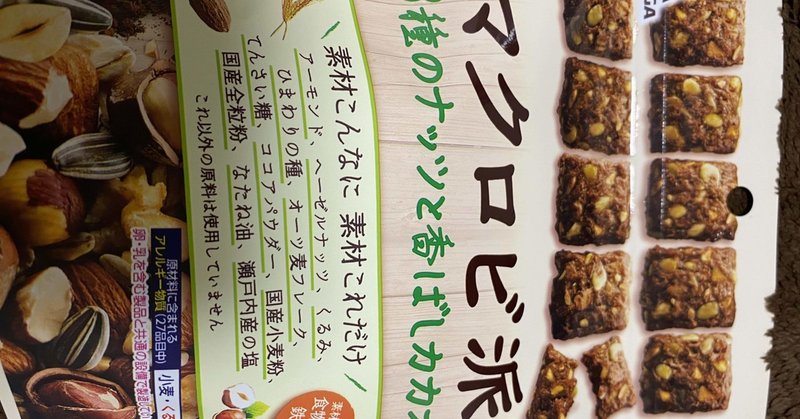 マクロビ派
種のナッツと香ばしカカ
素材こんなに 素材これだけ
アーモンド、ヘーゼルナッツ、くるみ、
ひまわりの種、オーツ麦フレーク、
てんさい糖、ココアパウダー、国産小麦粉、
国産全粒粉、なたね油、瀬戸内産の塩
これ以外の原料は使用していません
原材料に含まれる
アレルギー物質(27品目中)
小麦・くる
卵・乳を含む製品と共通の設備で製造
素材
食物
鉄
GA